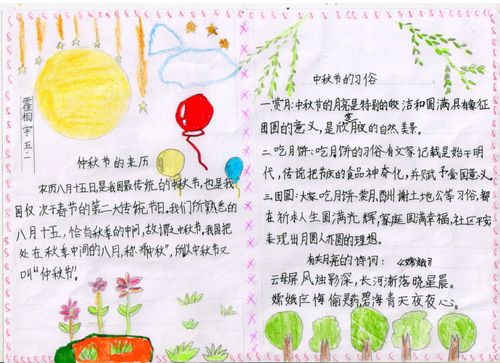 霍相宇 五二
仲秋节的来历
农历八月十五日是我国最传统的中秋节,也是我
国仅次于春节的第二大传统节日。我们所熟悉的
八月十五,恰为秋季的中间,故谓之中秋节。我国把
处在秋季中间的八月,称谓"仲秋",所以中秋节又
叫"仲秋节"。
中秋节的习俗
一.赏月:中秋节的月亮是特别的皎洁和圆满,具有象征
团圆的意义,是欣赏月夜的自然美景。
二.吃月饼:吃月饼的习俗有文字记载是始于明
代,传说把节庆的食品神奇化,并赋予爱国意义。
三.团圆:大家吃月饼、赏月、酬谢土地公等习俗,都
在祈求人生圆满光辉,家庭团圆幸福,社区平安
表现出月圆人亦圆的理想。
有关月亮的诗词:《嫦娥》
云母屏风烛影深,长河渐落晓星晨。
嫦娥应悔偷灵药,碧海青天夜夜心。